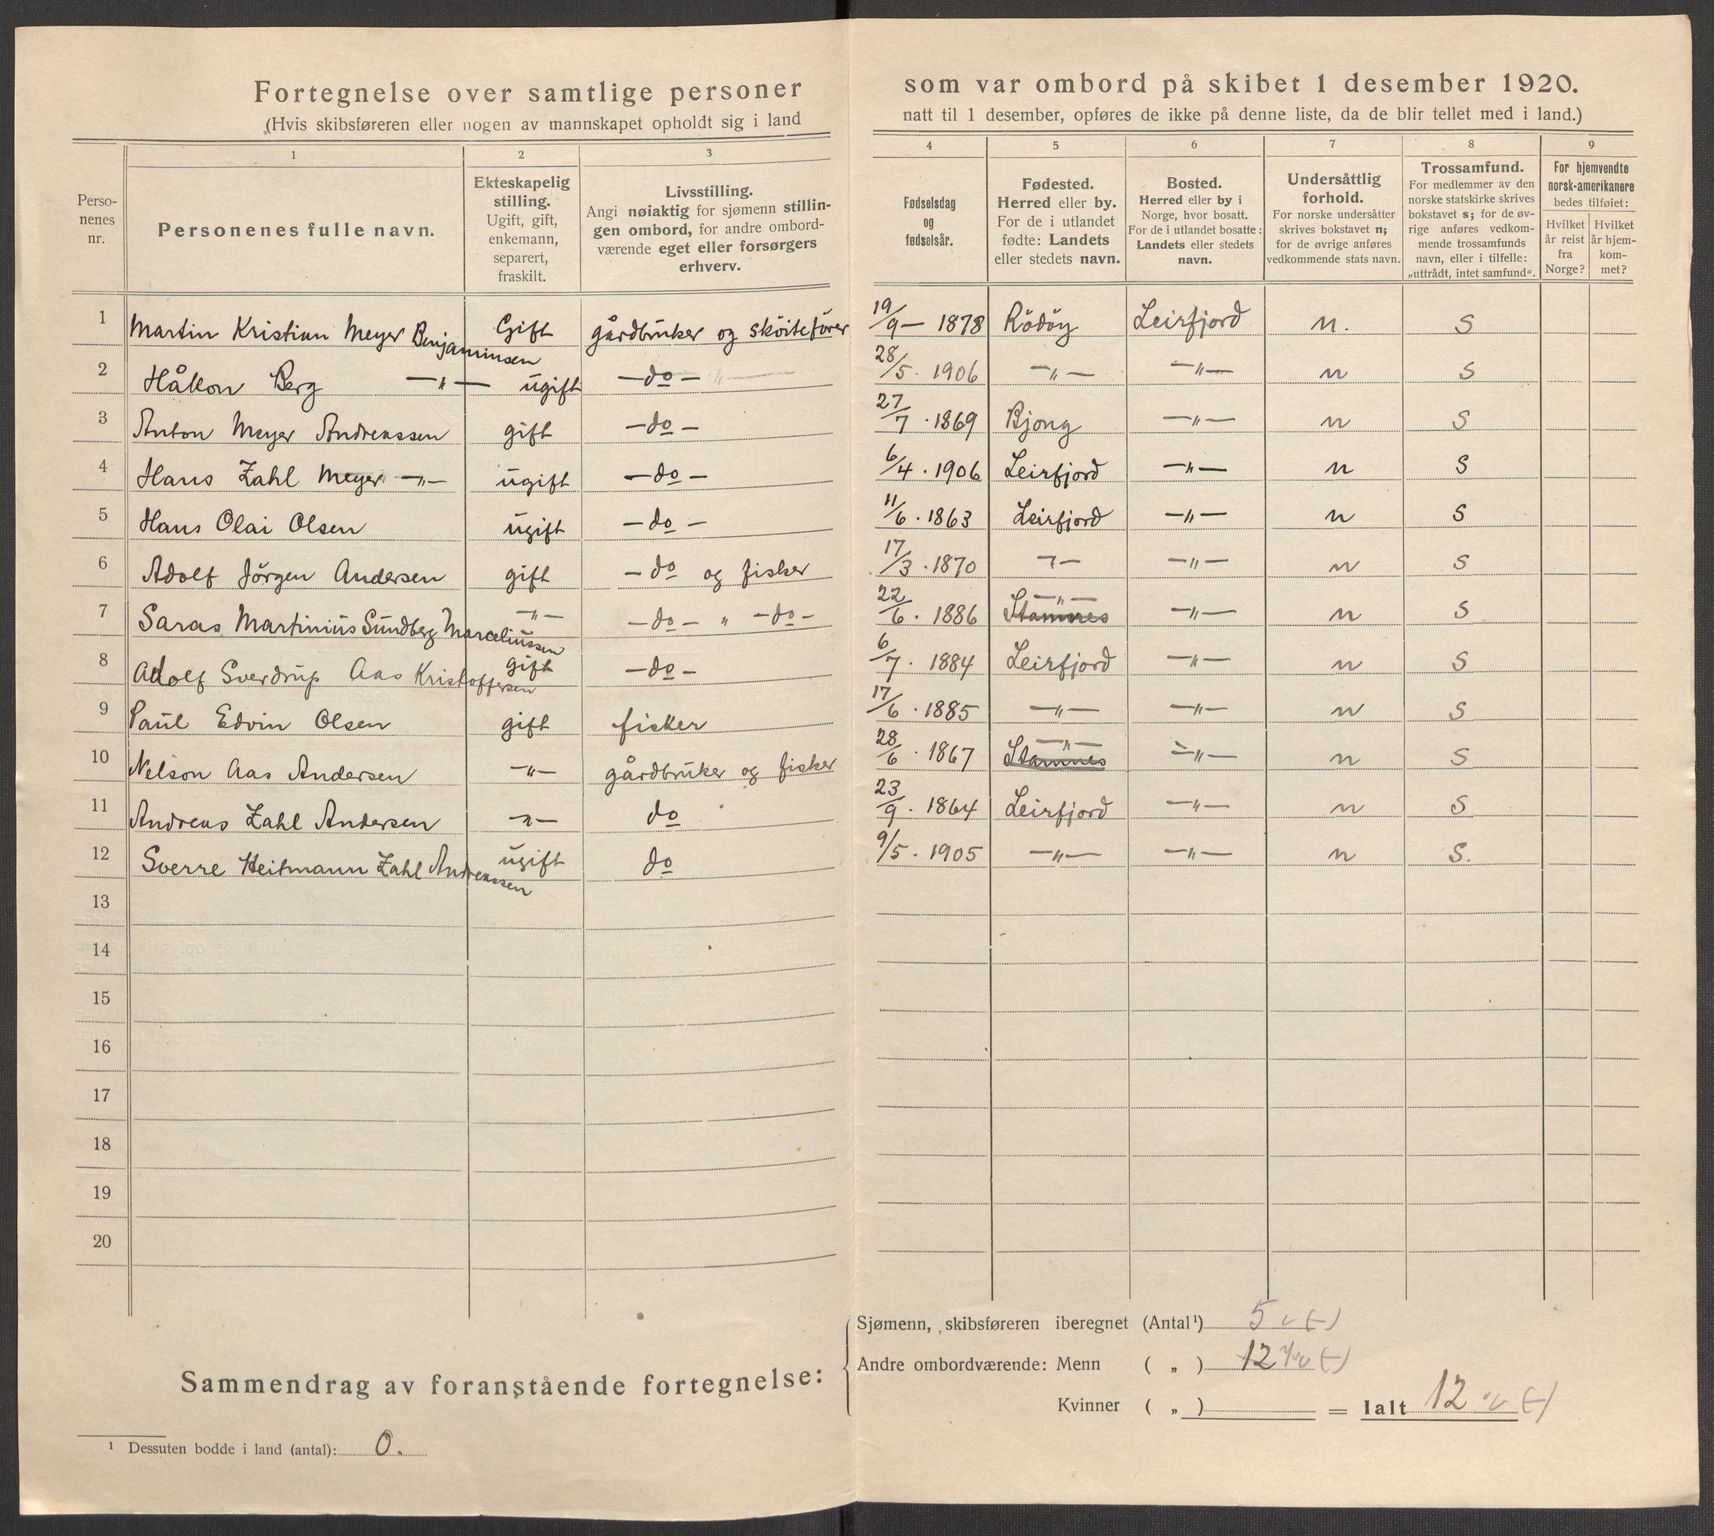 Fortegnelse over samtlige personer som var ombord på skibet 1 desember 1920.
(Hvis skibsføreren eller nogen av mannskapet opholdt sig i land natt til 1 desember, opføres de ikke på denne liste, da de blir tellet med i land.)
1 2 3 4 5 6 7 8 9
Personenes nr.
Personenes fulle navn.
Ekteskapelig stilling.
Ugift, gift, enkemann, separert, fraskilt.
Livsstilling.
Angi nøiaktig for sjømenn stillingen ombord, for andre ombordværende eget eller forsørgers erhverv.
Fødselsdag og fødselsår.
Fødested.
Herred eller by.
For de i utlandet fødte: Landets eller stedets navn.
Bosted.
Herred eller by i Norge, hvor bosatt.
For de i utlandet bosatte: Landets eller stedets navn.
Undersåttlig forhold.
For norske undersåtter skrives bokstavet n; for de øvrige anføres vedkommende stats navn.
Trossamfund.
For medlemmer av den norske statskirke skrives bokstavet s; for de øvrige anføres vedkommende trossamfunds navn, eller i tilfelle: „uttrådt, intet samfund".
For hjemvendte norsk-amerikanere bedes tilføiet:
Hvilket år reist fra Norge?
Hvilket år hjemkommet?
1 Martin Kristian Meyer Benjaminsen Gift gårdbruker og skøitefører 19/9 — 1878 Rödöy Leirfjord n. s
2 Håkon Berg —"— ugift —do— " 28/5 . 1906 —"— —"— n s
3 Anton Meyer Andreassen gift —do— 27/7 . 1869 Bjong —"— n s
4 Hans Zahl Meyer —"— ugift —do— 6/4 . 1906 Leirfjord —"— n s
5 Hans Olai Olsen ugift —do— 11/6 . 1863 Leirfjord —"— n s
6 Adolf Jörgen Andersen gift —do og fisker 17/3 . 1870 —"— —"— n s
7 Saras Martinius Sundberg Marceliussen —"— —do— " —do— 22/6 . 1886 —"— Stamnes —"— n s
8 Adolf Sverdrup Aas Kristoffersen gift —do— 6/7 . 1884 Leirfjord —"— n s
9 Paul Edvin Olsen gift fisker 17/6 . 1885 —"— —"— n s
10 Nelson Aas Andersen —"— gårdbruker og fisker 28/6 . 1867 —"— Stamnes —"— n s
11 Andreas Zahl Andersen —"— do 23/9 . 1864 Leirfjord —"— n s
12 Sverre Heitmann Zahl Andreassen ugift do 9/5 . 1905 —"— —"— n s.
13
14
15
16
17
18
19
20
Sammendrag av foranstående fortegnelse:
Sjømenn, skibsføreren iberegnet (Antal¹) 5
Andre ombordværende: Menn ( „ ) 12
Kvinner ( „ ) = Ialt 12
¹ Dessuten bodde i land (antal): 0.